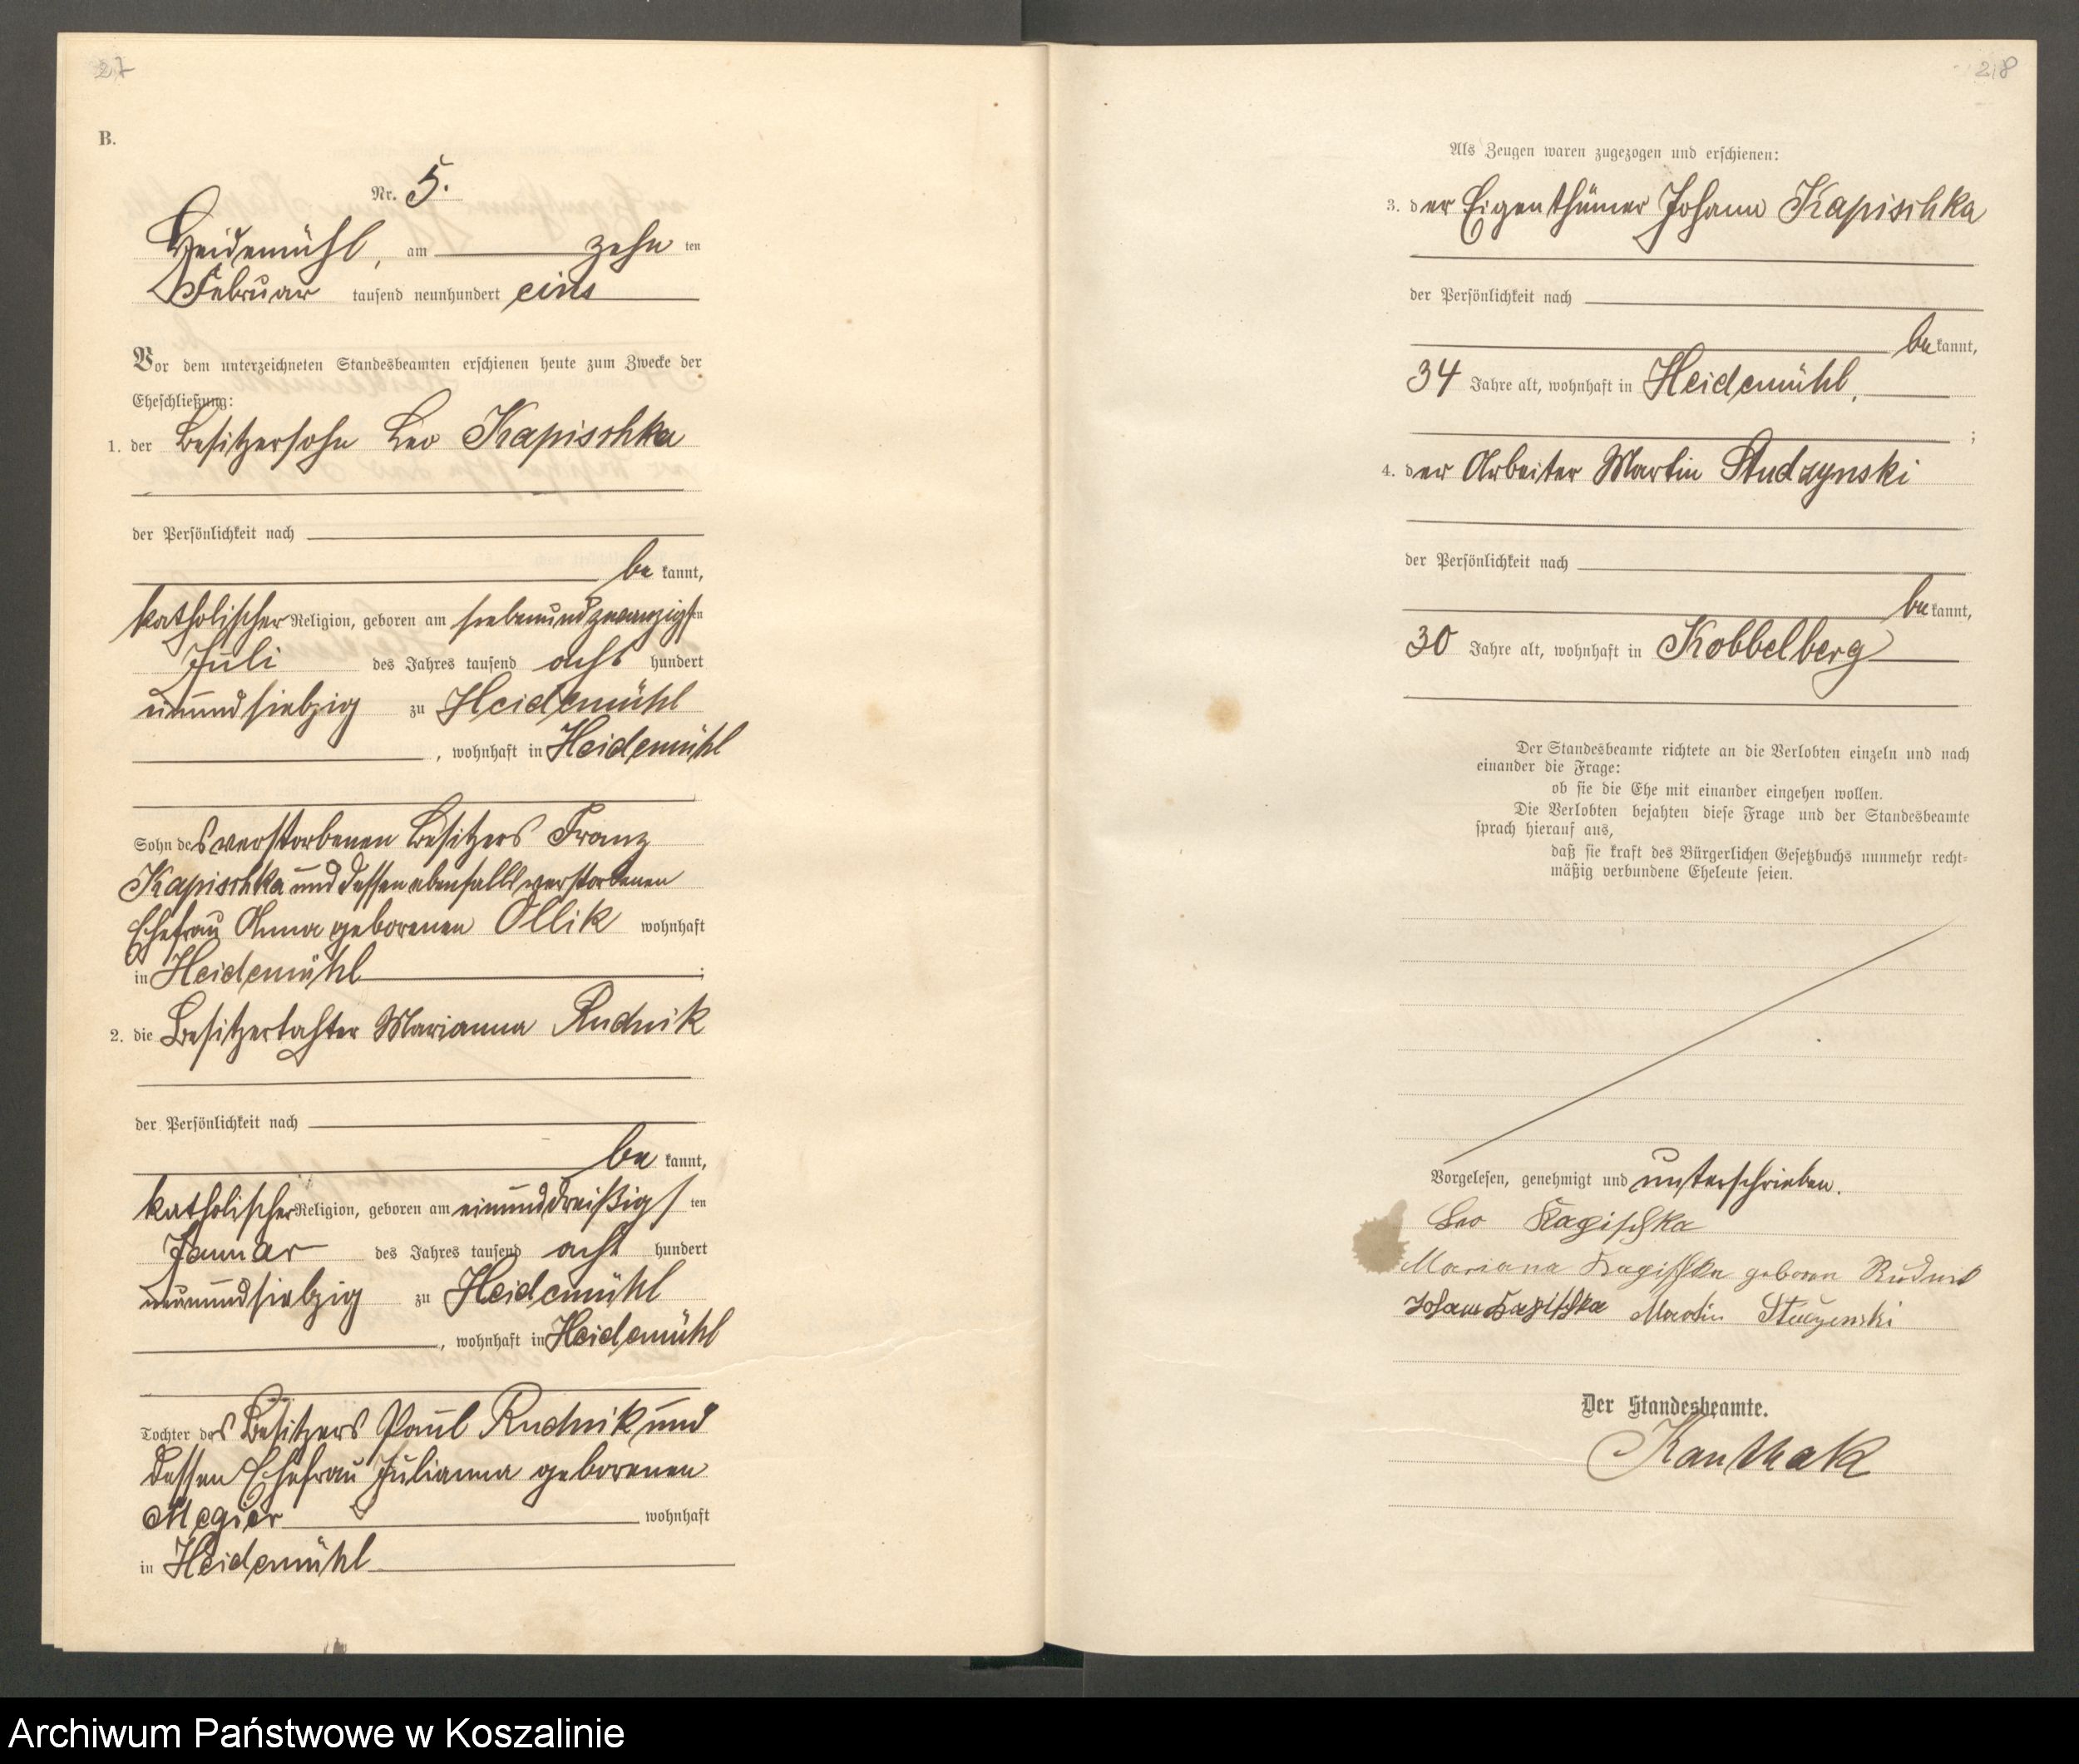 27
B.
Nr. 5.
Heidemühl, am zehn ten
Februar tausend neunhundert eins
Vor dem unterzeichneten Standesbeamten erschienen heute zum Zwecke der
Eheschließung:
1. der Besitzersohn Leo Kapischka
der Persönlichkeit nach
be kannt,
katholischer Religion, geboren am siebenundzwanzigsten
Juli des Jahres tausend acht hundert
neunundsiebzig zu Heidemühl
, wohnhaft in Heidemühl
Sohn des verstorbenen Besitzers Franz
Kapischka und dessen ebenfalls verstorbenen
Ehefrau Anna geborenen Ollik wohnhaft
in Heidemühl ;
2. die Besitzertochter Marianna Rudnik
der Persönlichkeit nach
be kannt,
katholischer Religion, geboren am einunddreißigs ten
Januar des Jahres tausend acht hundert
neunundsiebzig zu Heidemühl
, wohnhaft in Heidemühl
Tochter des Besitzers Paul Rudnik und
dessen Ehefrau Julianna geborenen
Megier wohnhaft
in Heidemühl
28
Als Zeugen waren zugezogen und erschienen:
3. der Eigenthümer Johann Kapischka
der Persönlichkeit nach
be kannt,
34 Jahre alt, wohnhaft in Heidemühl,
;
4. der Arbeiter Martin Studzynski
der Persönlichkeit nach
be kannt,
30 Jahre alt, wohnhaft in Kobbelberg
Der Standesbeamte richtete an die Verlobten einzeln und nach
einander die Frage:
ob sie die Ehe mit einander eingehen wollen.
Die Verlobten bejahten diese Frage und der Standesbeamte
sprach hierauf aus,
daß sie kraft des Bürgerlichen Gesetzbuchs nunmehr recht-
mäßig verbundene Eheleute seien.
Vorgelesen, genehmigt und unterschrieben.
Leo Kapischka
Mariana Kapischka geboren Rudnik
Johann Kapischka Martin
Der Standesbeamte.
Kanthak
Archiwum Państwowe w Koszalinie